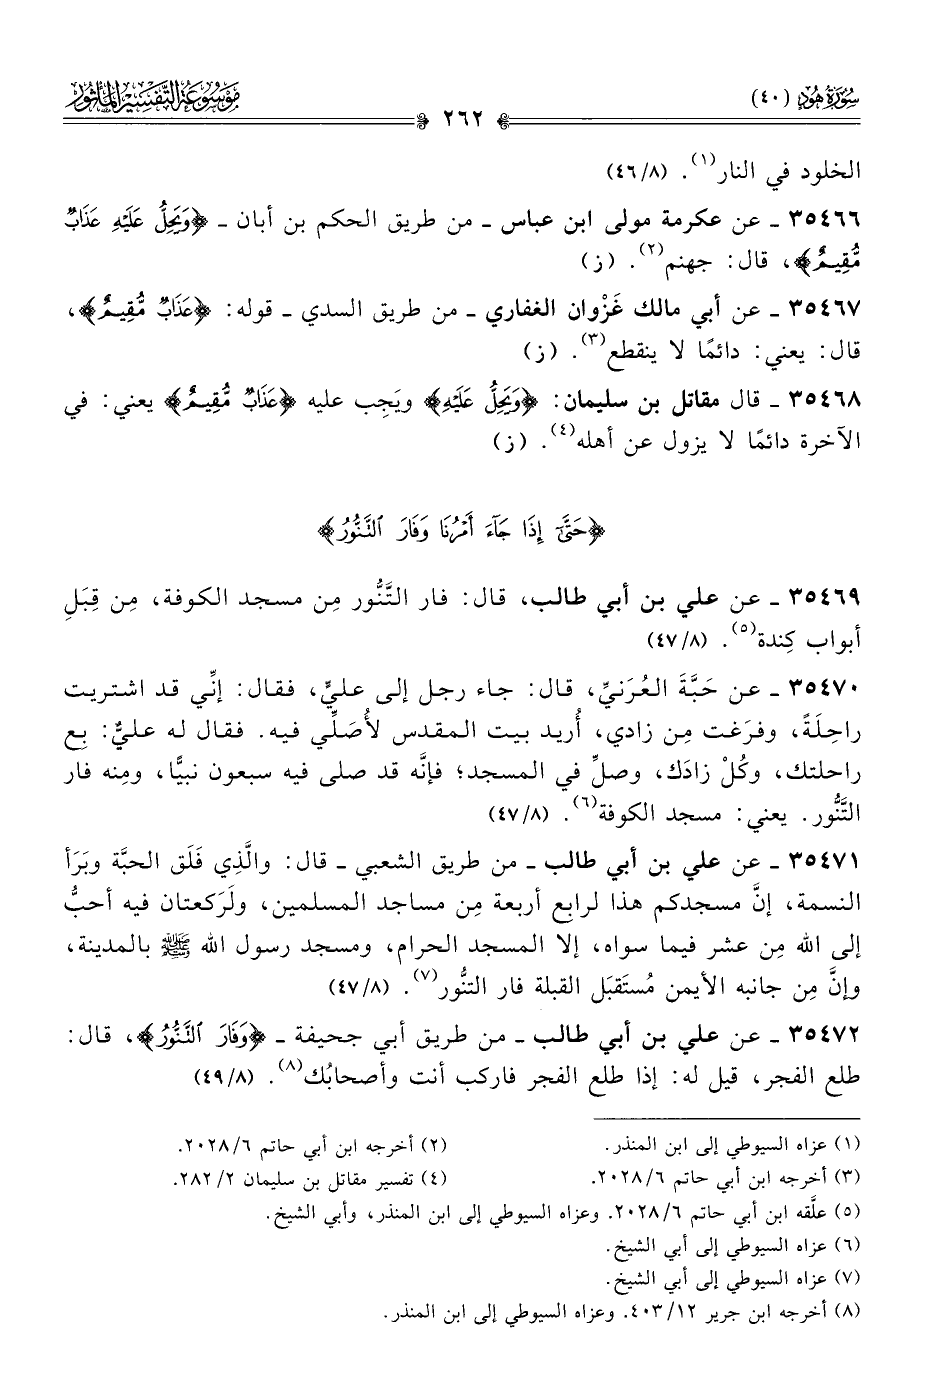 سُورَةُ هُودٍ (٤٠)
مَوْسُوعَةُ التَّفْسِيرِ المَأْثُور
٢٦٢
الخلود في النار(١). (٤٦/٨)
٣٥٤٦٦ ـ عن عكرمة مولى ابن عباس ـ من طريق الحكم بن أبان ـ ﴿وَيَحِلُّ عَلَيْهِ عَذَابٌ
مُّقِيمٌ﴾، قال: جهنم(٢). (ز)
٣٥٤٦٧ ـ عن أبي مالك غَزْوان الغفاري ـ من طريق السدي ـ قوله: ﴿عَذَابٌ مُّقِيمٌ﴾،
قال: يعني: دائمًا لا ينقطع(٣). (ز)
٣٥٤٦٨ ـ قال مقاتل بن سليمان: ﴿وَيَحِلُّ عَلَيْهِ﴾ ويَجِب عليه ﴿عَذَابٌ مُّقِيمٌ﴾ يعني: في
الآخرة دائمًا لا يزول عن أهله(٤). (ز)
﴿حَتَّىٰٓ إِذَا جَآءَ أَمْرُنَا وَفَارَ ٱلتَّنُّورُ﴾
٣٥٤٦٩ ـ عن علي بن أبي طالب، قال: فار التَّنُّور مِن مسجد الكوفة، مِن قِبَلِ
أبواب كِندة(٥). (٤٧/٨)
٣٥٤٧٠ ـ عن حَبَّةَ العُرَنيِّ، قال: جاء رجل إلى عليٍّ، فقال: إنِّي قد اشتريت
راحِلَةً، وفرَغت مِن زادي، أُريد بيت المقدس لأُصَلِّي فيه. فقال له عليٌّ: بِع
راحلتك، وكُلْ زادَك، وصلِّ في المسجد؛ فإنَّه قد صلى فيه سبعون نبيًّا، ومِنه فار
التَّنُّور. يعني: مسجد الكوفة(٦). (٤٧/٨)
٣٥٤٧١ ـ عن علي بن أبي طالب ـ من طريق الشعبي ـ قال: والَّذِي فَلَق الحبَّة وبَرَأ
النسمة، إنَّ مسجدكم هذا لرابع أربعة مِن مساجد المسلمين، ولَرَكعتان فيه أحبُّ
إلى الله مِن عشر فيما سواه، إلا المسجد الحرام، ومسجد رسول الله ﷺ بالمدينة،
وإنَّ مِن جانبه الأيمن مُستَقبَل القبلة فار التنُّور(٧). (٤٧/٨)
٣٥٤٧٢ ـ عن علي بن أبي طالب ـ من طريق أبي جحيفة ـ ﴿وَفَارَ ٱلتَّنُّورُ﴾، قال:
طلع الفجر، قيل له: إذا طلع الفجر فاركب أنت وأصحابُك(٨). (٤٩/٨)
(١) عزاه السيوطي إلى ابن المنذر.
(٢) أخرجه ابن أبي حاتم ٢٠٢٨/٦.
(٣) أخرجه ابن أبي حاتم ٢٠٢٨/٦.
(٤) تفسير مقاتل بن سليمان ٢٨٢/٢.
(٥) علَّقه ابن أبي حاتم ٢٠٢٨/٦. وعزاه السيوطي إلى ابن المنذر، وأبي الشيخ.
(٦) عزاه السيوطي إلى أبي الشيخ.
(٧) عزاه السيوطي إلى أبي الشيخ.
(٨) أخرجه ابن جرير ٤٠٣/١٢. وعزاه السيوطي إلى ابن المنذر.